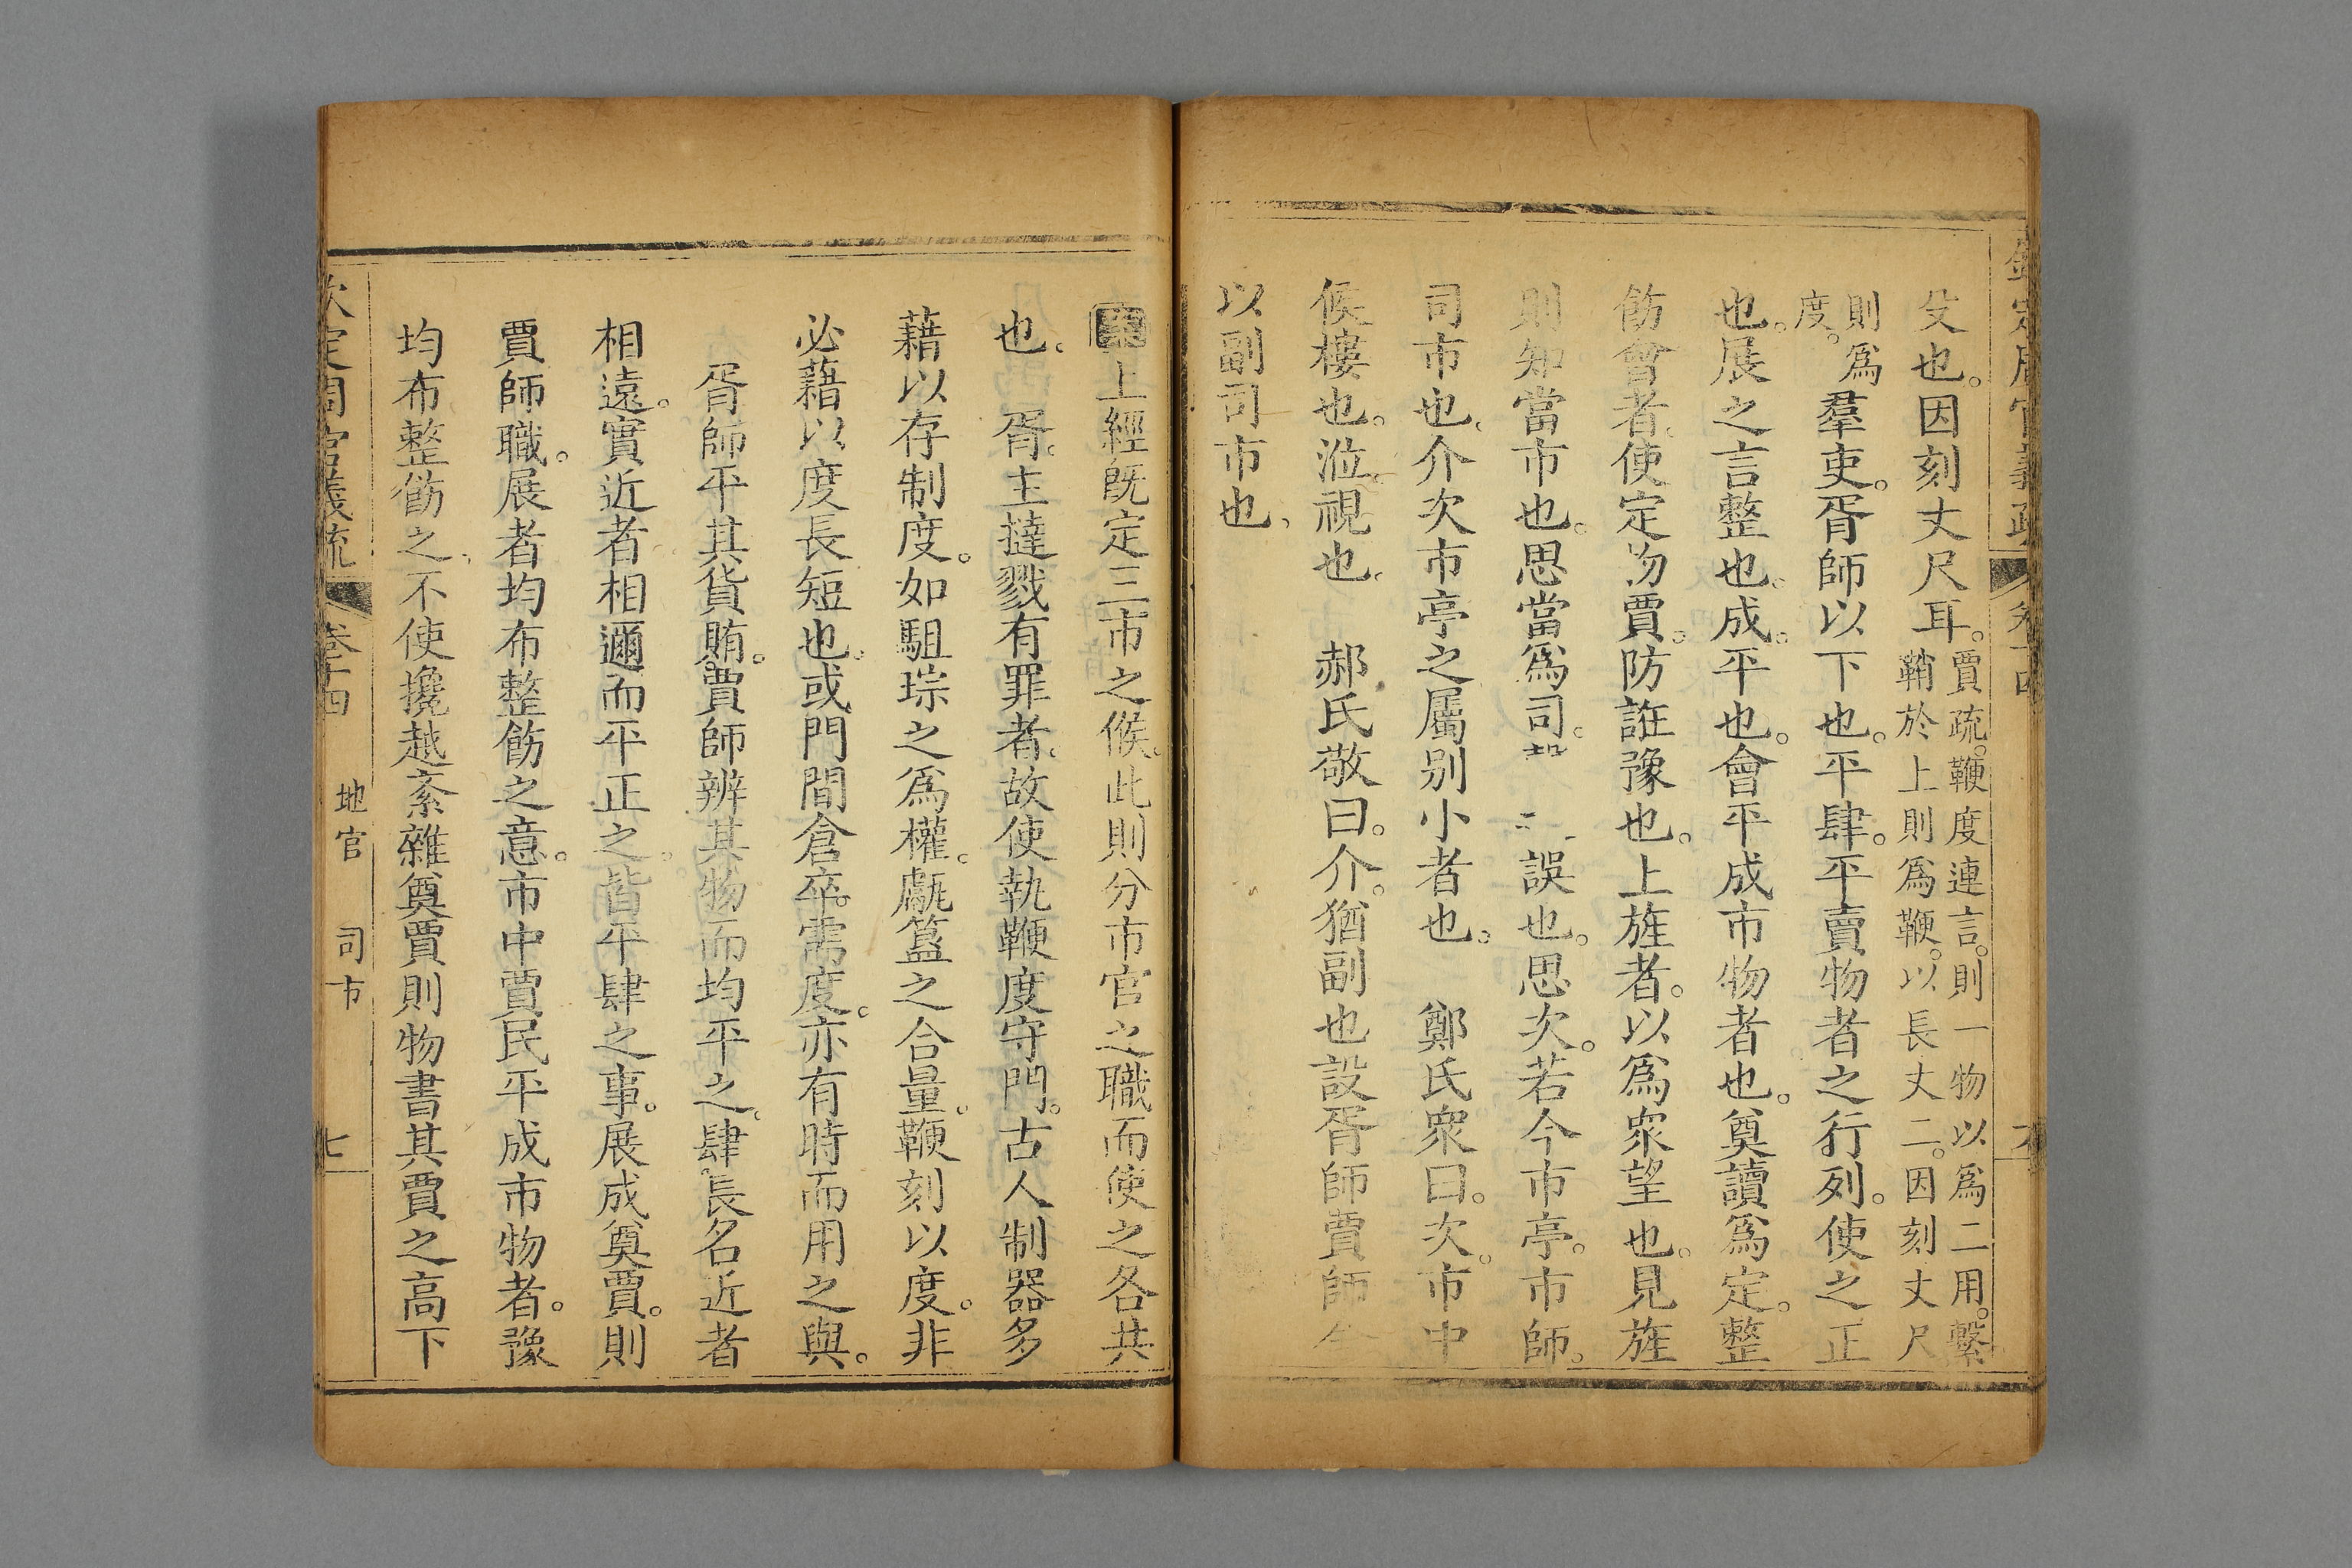 欽定周官義疏 卷十四 六
殳也。因刻丈尺耳。賈疏。鞭度連言。則一物以爲二用。繫鞘於上則爲鞭。以長丈二。因刻丈尺
則爲度。羣吏。胥師以下也。平肆。平賣物者之行列。使之正
也。展之言整也。成。平也。會平成市物者也。奠讀爲定。整
飭會者。使定物賈。防誑豫也。上旌者。以爲衆望也。見旌
則知當市也。思當爲司。誤也。思次。若今市亭。市師。
司市也。介次市亭之屬别小者也。 鄭氏衆曰。次。市中
候樓也。涖。視也。 郝氏敬曰。介。猶副也設胥師賈師
以副司市也。
案上經既定三市之候。此則分市官之職而使之各共
也。 胥。主撻戮有罪者。故使執鞭度守門。古人制器多
藉以存制度。如駔琮之爲權。甗簋之合量。鞭刻以度。非
必藉以度長短也。或門間倉卒。需度。亦有時而用之與。
胥師平其貨賄。賈師辨其物而均平之。肆長名近者
相遠。實近者相邇而平正之。皆平肆之事。展成奠賈。則
賈師職。展者均布整飭之意。市中賈民平成市物者。豫
均布整飭之。不使攙越紊雜奠賈則物書其賈之高下
欽定周官義疏 卷十四 地官 司市 七